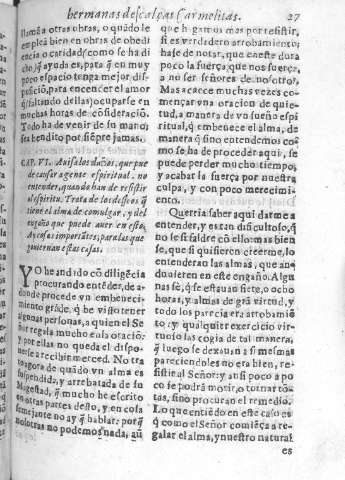 hermanas descalças Carmelitas. 27
llamã a otras obras, o quãdo le
emplea bien en obras de obedi
encia o caridad (como se ha di
cho) q̃ ayuda es, para q̃ en muy
poco espacio tenga mejor dis-
pusiciõ, para encender el amor
q̃ faltando dellas) ocuparse en
muchas horas de cõsideraciõ.
Todo ha de venir de su mano;
sea bendito por siẽpre jamas.
CAP. VI. Auisa los daños, que pue
de causar a gente espiritual. no
entender, quando han de resistir
al espiritu. Trata de los desseos q̃
tiene el alma de comulgar, y del
engaño que puede auer en esto,
Ay cosas importãtes, para las que
gouiernan estas casas.
YO he andido cõ diligẽcia
procurando entẽder, de a-
donde procede vn embeueci-
miento grãde, q̃ he visto tener
algunas personas, a quien el Se
ñor regala mucho en la oraciõ:
y por ellas no queda el dispo-
nerse a recibir merced. No tra
to agora de quãdo vn alma es
suspendida, y arrebatada de su
Magestad, q̃ mucho he escrito
en otras partes desto, y en cosa
semejante no ay q̃ hablar: porq̃
nosotras no podemos nada, aũ
que hagamos mas por resistir,
si es verdadero arrobamiẽto.
Hase de notar, que en este dura
poco la fuerça, que nos fuerça,
a no ser señores de nosotros,
Mas acaece muchas vezes co-
mençar vna oracion de quie-
tud, a manera de vn sueño espi
ritual, q̃ embeuece el alma, de
manera q̃ sino entendemos co-
mo se ha de proceder aqui, se
puede perder mucho tiempo,
y acabar la fuerça por nuestra
culpa, y con poco merecimi-
ento.
Querria saber aqui darme a
entender, y es tan dificultoso, q̃
no lè si saldrè cõ ello: mas bien
se, que si quisieren creerme, lo
entenderan las almas, que an-
duuieren en este engaño. Algu
nas sè, q̃ se estauan siete, o ocho
horas, y almas de grã virtud, y
todo les parecia era arrobamiẽ
to: y qualquier exercicio vir-
tuoso las cogia de tal manera,
q̃ luego se dexauan a si mesmas
pareciendoles no era bien, re-
sistir al Señor: y ansi poco a po
co se podrã morir, o tornar tõ-
tas, sino procuran el remedio.
Lo que entiẽdo en este caso es
q̃ como el Señor comiẽça a re-
galar el alma, y nuestro natural
es